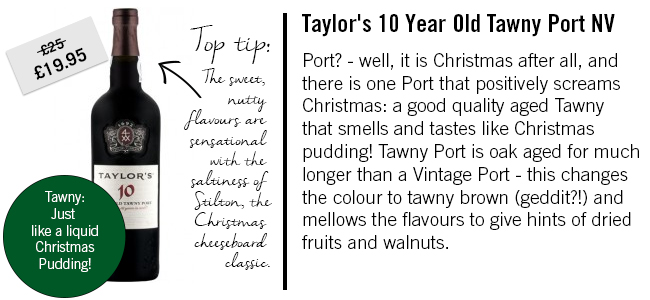 £25
£19.95
Top tip:
The sweet,
nutty
flavours are
sensational
with the
saltiness of
Stilton, the
Christmas
cheeseboard
classic.
TAYLOR'S
10
OLD TAWNY PORT
Tawny:
Just
like a liquid
Christmas
Pudding!
Taylor's 10 Year Old Tawny Port NV
Port? - well, it is Christmas after all, and
there is one Port that positively screams
Christmas: a good quality aged Tawny
that smells and tastes like Christmas
pudding! Tawny Port is oak aged for much
longer than a Vintage Port - this changes
the colour to tawny brown (geddit?!) and
mellows the flavours to give hints of dried
fruits and walnuts.